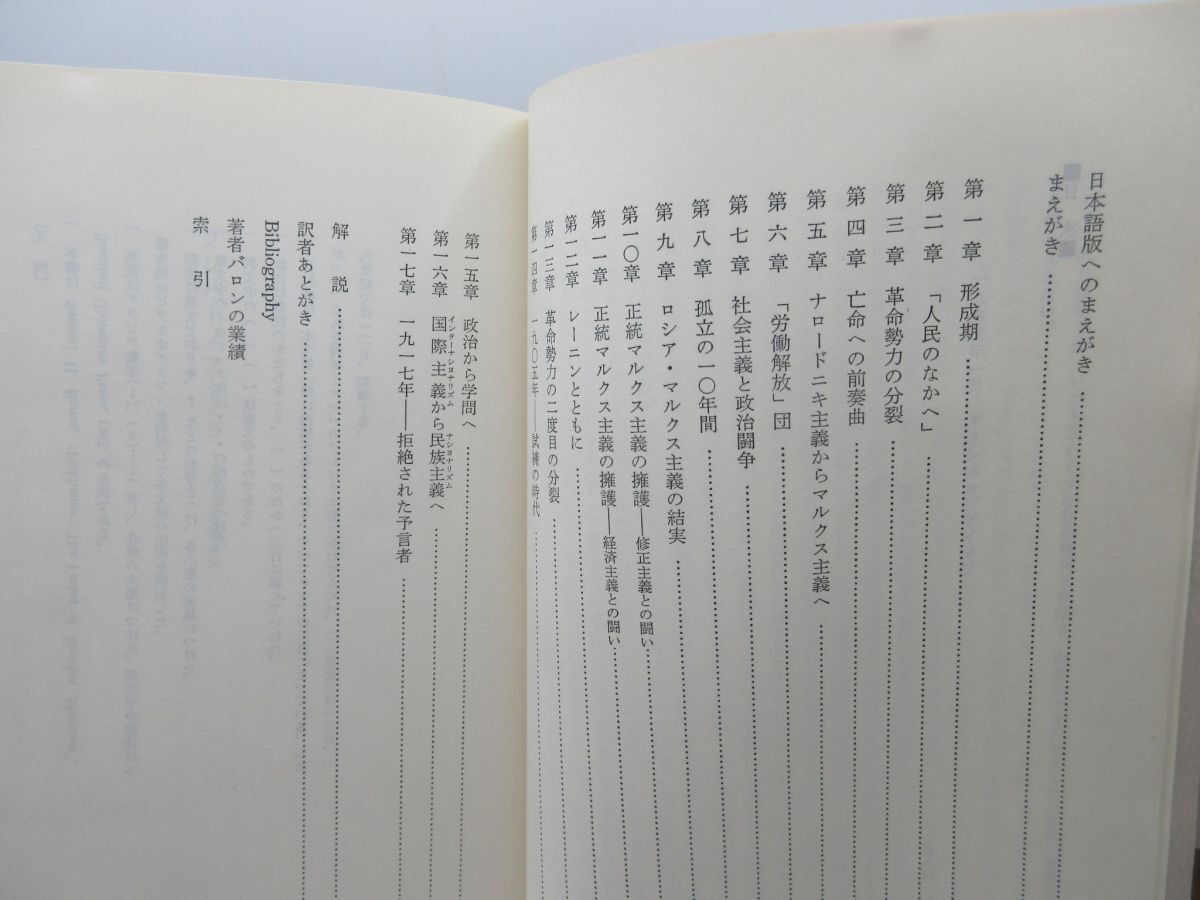 日本語版へのまえがき
まえがき
第一章 形成期
第二章 「人民のなかへ」
第三章 革命勢力の分裂
第四章 亡命への前奏曲
第五章 ナロードニキ主義からマルクス主義へ
第六章 「労働解放」団
第七章 社会主義と政治闘争
第八章 孤立の一〇年間
第九章 ロシア・マルクス主義の結実
第一〇章 正統マルクス主義の擁護——修正主義との闘い
第一一章 正統マルクス主義の擁護——経済主義との闘い
第一二章 レーニンとともに
第一三章 革命勢力の二度目の分裂
第一四章 一九〇五年——試練の時代
第一五章 政治から学問へ
第一六章 国際主義から民族主義へ
インターナシヨナリズム ナシヨナリズム
第一七章 一九一七年——拒絶された予言者
解説
訳者あとがき
Bibliography
著者バロンの業績
索引